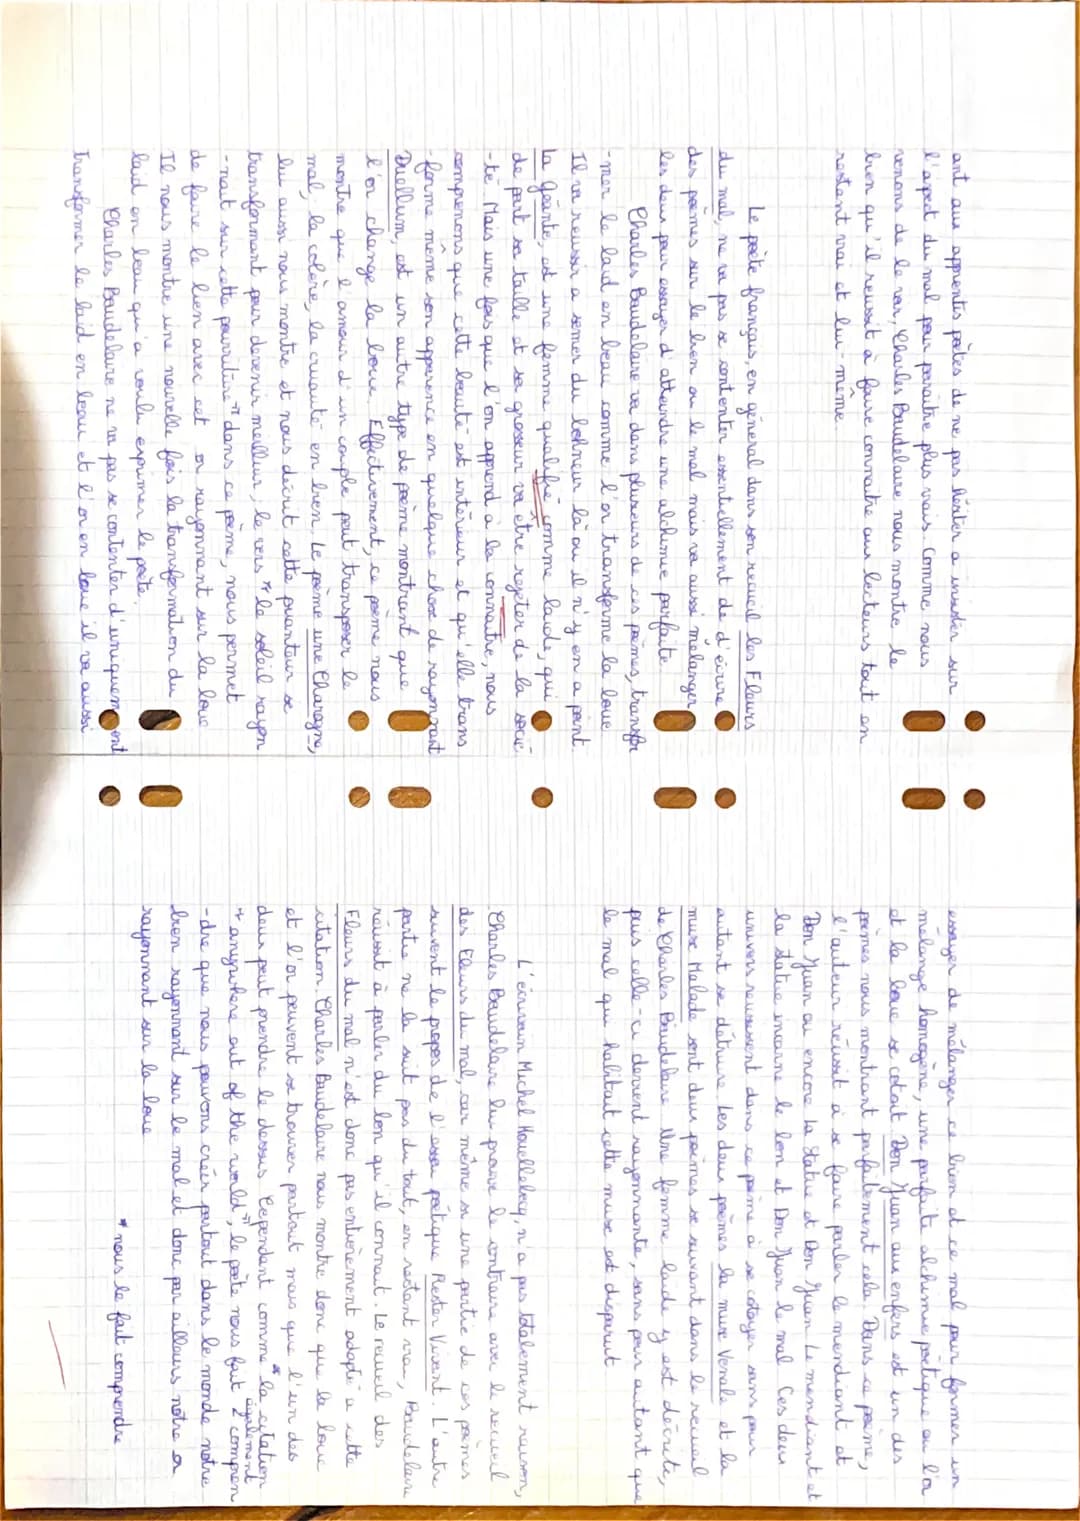 ant aux apprentis poètes de ne pas hésiter a insister sur
l'aspect du mal pour paraître plus vrais. Comme nous
venons de le voir, Charles Baudelaire nous montre le
bien qu'il reussit à faire connaitre aux lecteurs tout en
restant vrai et lui-même.
Le poète français, en général dans son recueil les Fleurs
du mal, ne va pas se contenter essentiellement de d'écrire
des poèmes sur le bien ou le mal mais va aussi mélanger
les deux pour essayer d'atteindre une alchimie parfaite.
Charles Baudelaire va dans plusieurs de ces poèmes, transfor
-mer le laid en beau comme l'or transforme la boue
Il va reussir a semer du bohneur là ou il n'y en a point.
La Géante, est une femme qualifié comme laide, qui
de part sa taille et sa grosseur va être rejeter de la socié-
-té Mais une fois que l'on apprend a la connaitre, nous
comprenons que cette beauté est intérieur et qu'elle trans
-forme même son apparence en quelque chose de rayonnant
Duellum, est un autre type de poème montrant que
l'or change la boue Effectivement, ce poème nous
montre que l'amour d'un couple peut transposer le
mal, la colère, la cruauté en bien Le poème une Charogne,
lui aussi nous montre et nous décrit cette puanteur se
transformant pour devenir meilleur, le vers "le soleil rayon
-nait sur cette pourriture" dans ce poème, nous permet
de faire le lien avec cet or rayonnant sur la boue
Il nous montre une nouvelle fois la transformation du
laid en beau qu'a voulu exprimer le poète.
Charles Baudelaire ne va pas se contenter d'uniquement
transformer le laid en beau et l'or en boue il va aussi
essayer de mélanger ce bien et ce mal pour former un
mélange homogène, une parfaite alchimie poétique ou l'or
et la boue se cotoit Don Juan aux enfers est un des
poèmes nous montrant parfaitement cela. Dans ce poème,
l'auteur réussit à se faire parler le mendiant et
Don Juan ou encore la Statue et Don Juan Le mendiant et
la statue incarne le bon et Don Juan le mal Ces deux
univers reussissent dans ce poème à se cotoyer sans pour
autant se détruire Les deux poèmes la muse Venale et la
muse Malade sont deux poèmes se suivant dans le recueil
de Charles Baudelaire Une femme laide y est décrite,
puis celle-ci devient rayonnante, sans pour autant que
le mal qui habitait cette muse ait disparut
L'écrivain Michel Houellebecq, n'a pas totalement raison,
Charles Baudelaire lui prouve le contraire avec le recueil
des Fleurs du mal, car même si une partie de ces poèmes
suivent le propos de l'essai poétique Rester Vivant. L'autre
partie ne la suit pas du tout, en restant vrai, Baudelaire
réussit à parler du bon qu'il connait. Le recueil des
Fleurs du mal n'est donc pas entièrement adapté a cette
citation Charles Baudelaire nous montre donc que la boue
et l'or peuvent se trouver partout mais que l'un des
deux peut prendre le dessus Cependant comme * la citation
également
"anywhere out of the world", le poète nous fait compren
-dre que nous pouvons créer partout dans le monde notre
bien rayonnant sur le mal et donc par ailleurs notre or
rayonnant sur la boue
* nous le fait comprendre